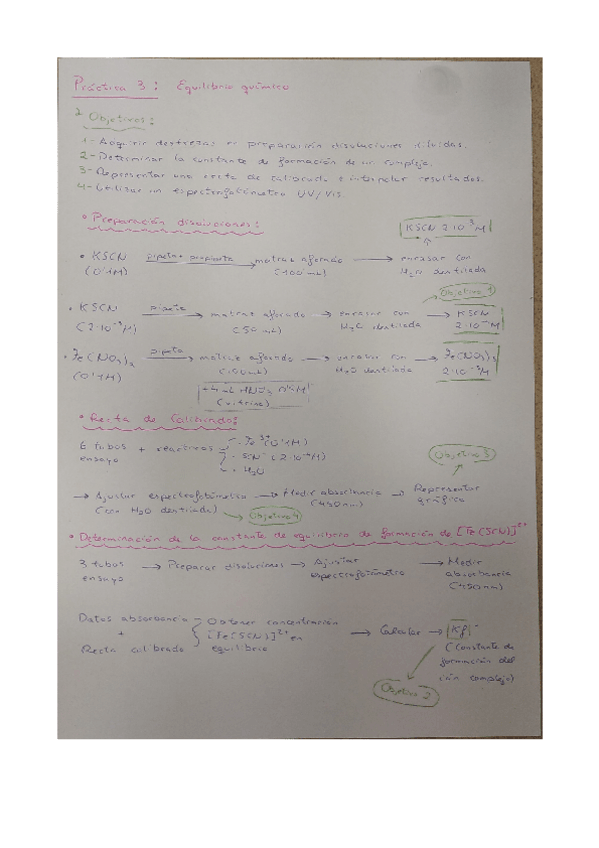 Práctica 3: Equilibrio químico
Objetivos:
1- Adquirir destrezas en preparación disoluciones diluidas.
2- Determinar la constante de formación de un complejo.
3- Representar una recta de calibrado e interpolar resultados.
4- Utilizar un espectrofotómetro UV/Vis.
• Preparación disoluciones:
KSCN 2·10⁻³M
• KSCN pipeta + propipeta matraz aforado → enrasar con
(0'1M) (100 mL) H₂O destilada
Objetivo 1
• KSCN pipeta → matraz aforado → enrasar con → KSCN
(2·10⁻³M) (50 mL) H₂O destilada 2·10⁻⁴M
• Fe(NO₃)₃ pipeta → matraz aforado → enrasar con → Fe(NO₃)₃
(0'1M) (100mL) H₂O destilada 2·10⁻³M
+4 mL HNO₃
(vitrina)
• Recta de Calibrado:
6 tubos + reactivos - Fe³⁺ (0'1M)
ensayo - SCN⁻ (2·10⁻⁴M)
- H₂O
Objetivo 3
→ Ajustar espectrofotómetro → Medir absorbancia → Representar
(con H₂O destilada) (450nm) gráfica
Objetivo 4
• Determinación de la constante de equilibrio de formación de [Fe(SCN)]²⁺
3 tubos → Preparar disoluciones → Ajustar → Medir
ensayo espectrofotómetro absorbancia
(450nm)
Datos absorbancia Obtener concentración → Calcular → Kf
+ [Fe(SCN)]²⁺ en (Constante de
Recta calibrado equilibrio formación del
ión complejo)
Objetivo 2